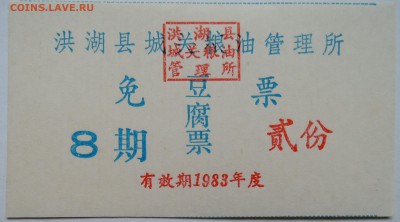 COINS.SU LAVE.RU
洪湖县城关粮油管理所
洪湖县
城关粮油
管理所
免豆腐票票
8期
贰份
有效期1983年度